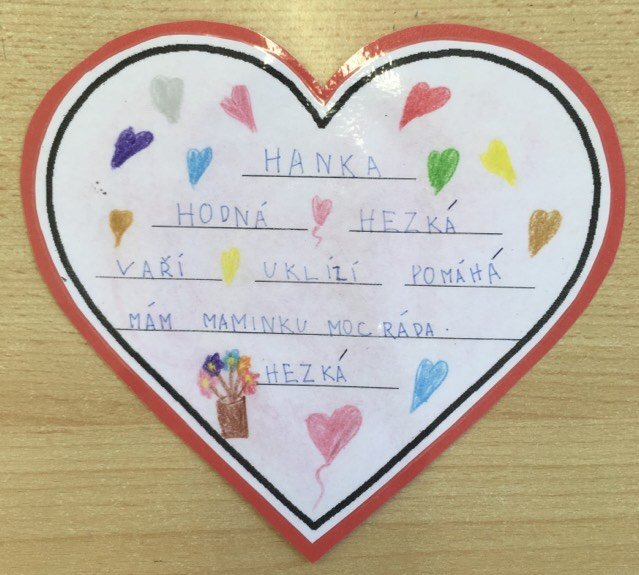 HANKA
HODNÁ HEZKÁ
VAŘÍ UKLÍZÍ POMÁHÁ
MÁM MAMINKU MOC RÁDA.
HEZKÁ